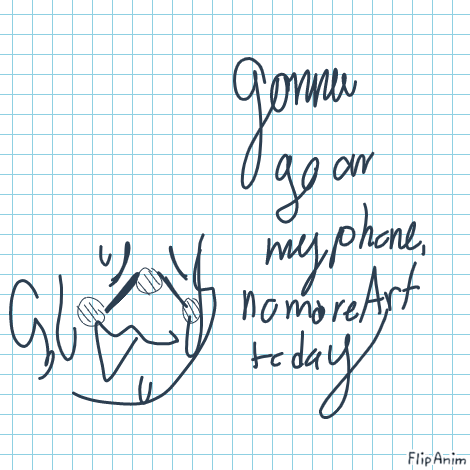 gonna
go on
my phone,
no more Art
today
FlipAnim